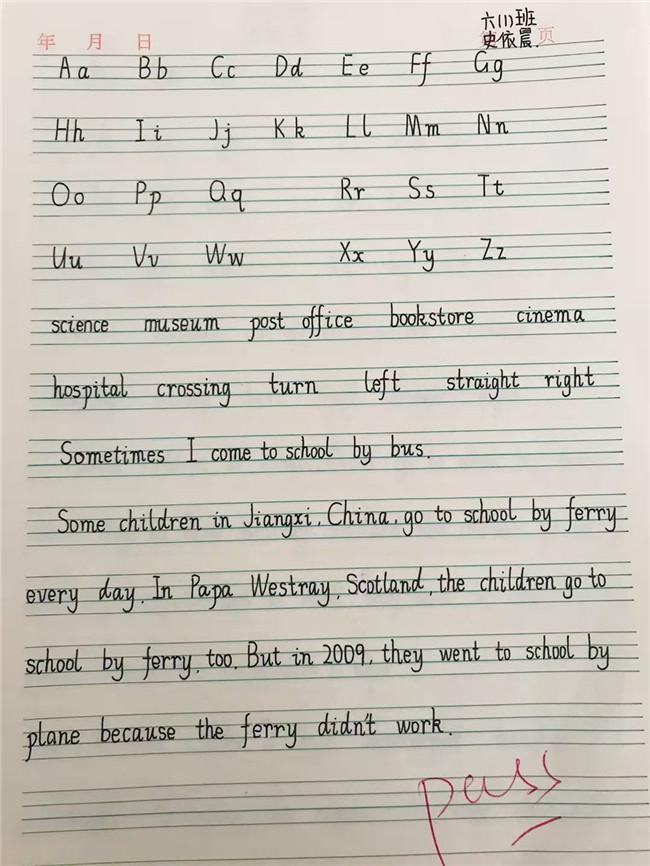 六(1)班
年 月 日 第 页
史依晨.
Aa Bb Cc Dd Ee Ff Gg
Hh Ii Jj Kk Ll Mm Nn
Oo Pp Qq Rr Ss Tt
Uu Vv Ww Xx Yy Zz
science museum post office bookstore cinema
hospital crossing turn left straight right
Sometimes I come to school by bus.
Some children in Jiangxi, China, go to school by ferry
every day. In Papa Westray, Scotland, the children go to
school by ferry, too. But in 2009, they went to school by
plane because the ferry didn't work.
pass